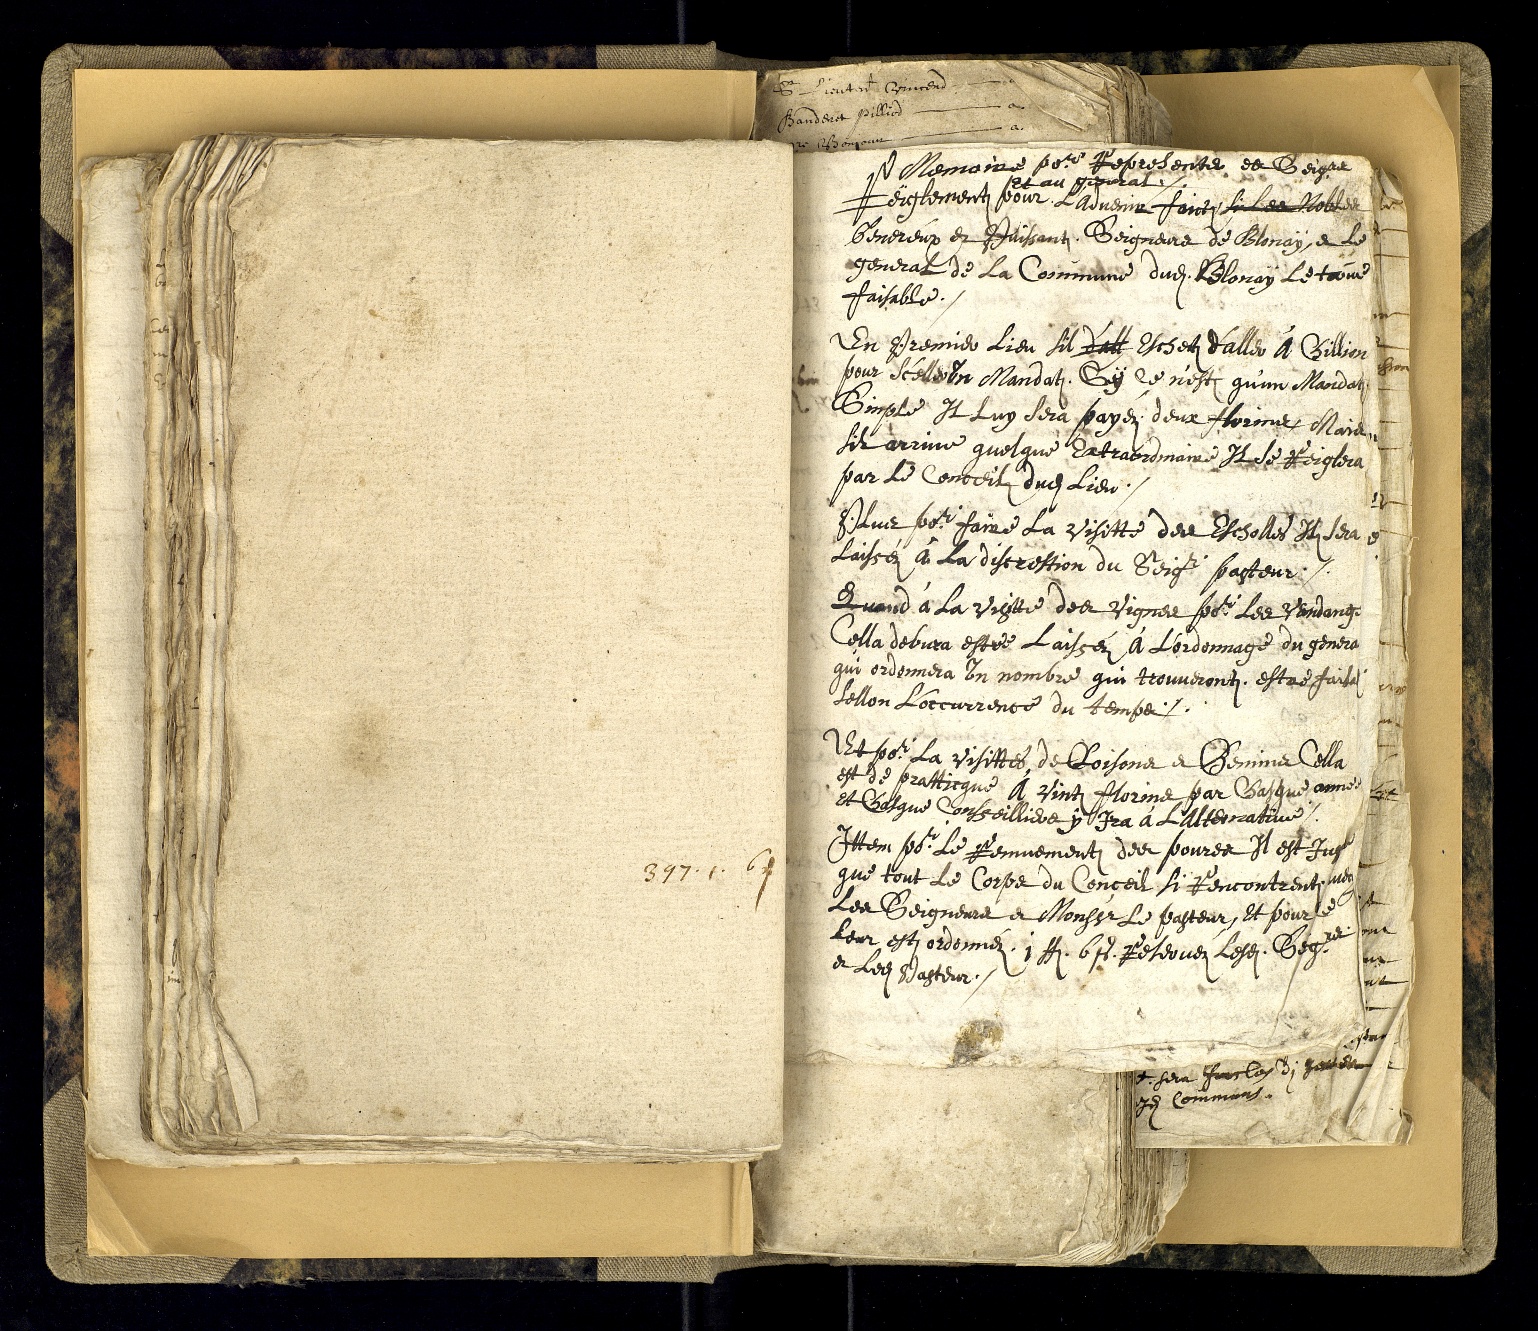 Sr Lieuten
Banderet Pilliod a.
397. 1. 6
Memoire por Representer ee Seigrs
Et au general./
Reiglement pour L'advenir faict si Les Nobles
Genereux et Puissant. Seigneurs de Blonay, e Le
general de La Commune dud. Blonay Le trouve
faisable./
En Premier Lieu sil d'att Eschet d'aller á Villion
pour Sceller Un Mandat. Sy ce n'est qu'un Mandat
Simple Il Luy sera payéz deux florins, Mais
sil arrive quelque Extraordinaire Il se Reiglera
par Le Conceil dud Lieu./
Plus por. faire La Visitte des Escholles Il sera
Laisséz á La discrestion du Seigr. pasteur./.
Quand á La Visitte des Vignes por. Les Vandang
Cella debvra estre Laisséz á L'ordonnage du genera
qui ordonnera Un nombre qui trouveront. estre
Sellon L'occurrence du temps./.
Et por. La Visittes de Boisons e Cella
est de pratticque á vint florins par Chasque année
et Chasque Conseilliers y Ira á L'Alternative./.
Ittem por. Le Remuement des poures Il est Jug
que tout Le Corps du Conceil si Rencontrent avec
Les Seigneurs e Monsr Le pasteur, Et pour Le
Leur est ordonnéz. 1 ff. 6 s. Reservez Lesd. Segrs.
e Led Pasteur./
t. sera
Commons.